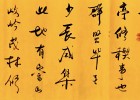 亭修稧事也
群賢畢至
少長咸集
此地有崇山
峻領茂林修